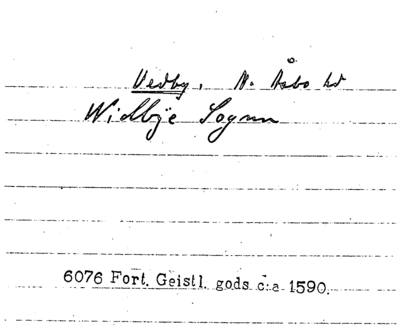 Vedby, N. Åsbo hd
Widbÿe Sognn
6076 Fort. Geistl. gods c:a 1590.